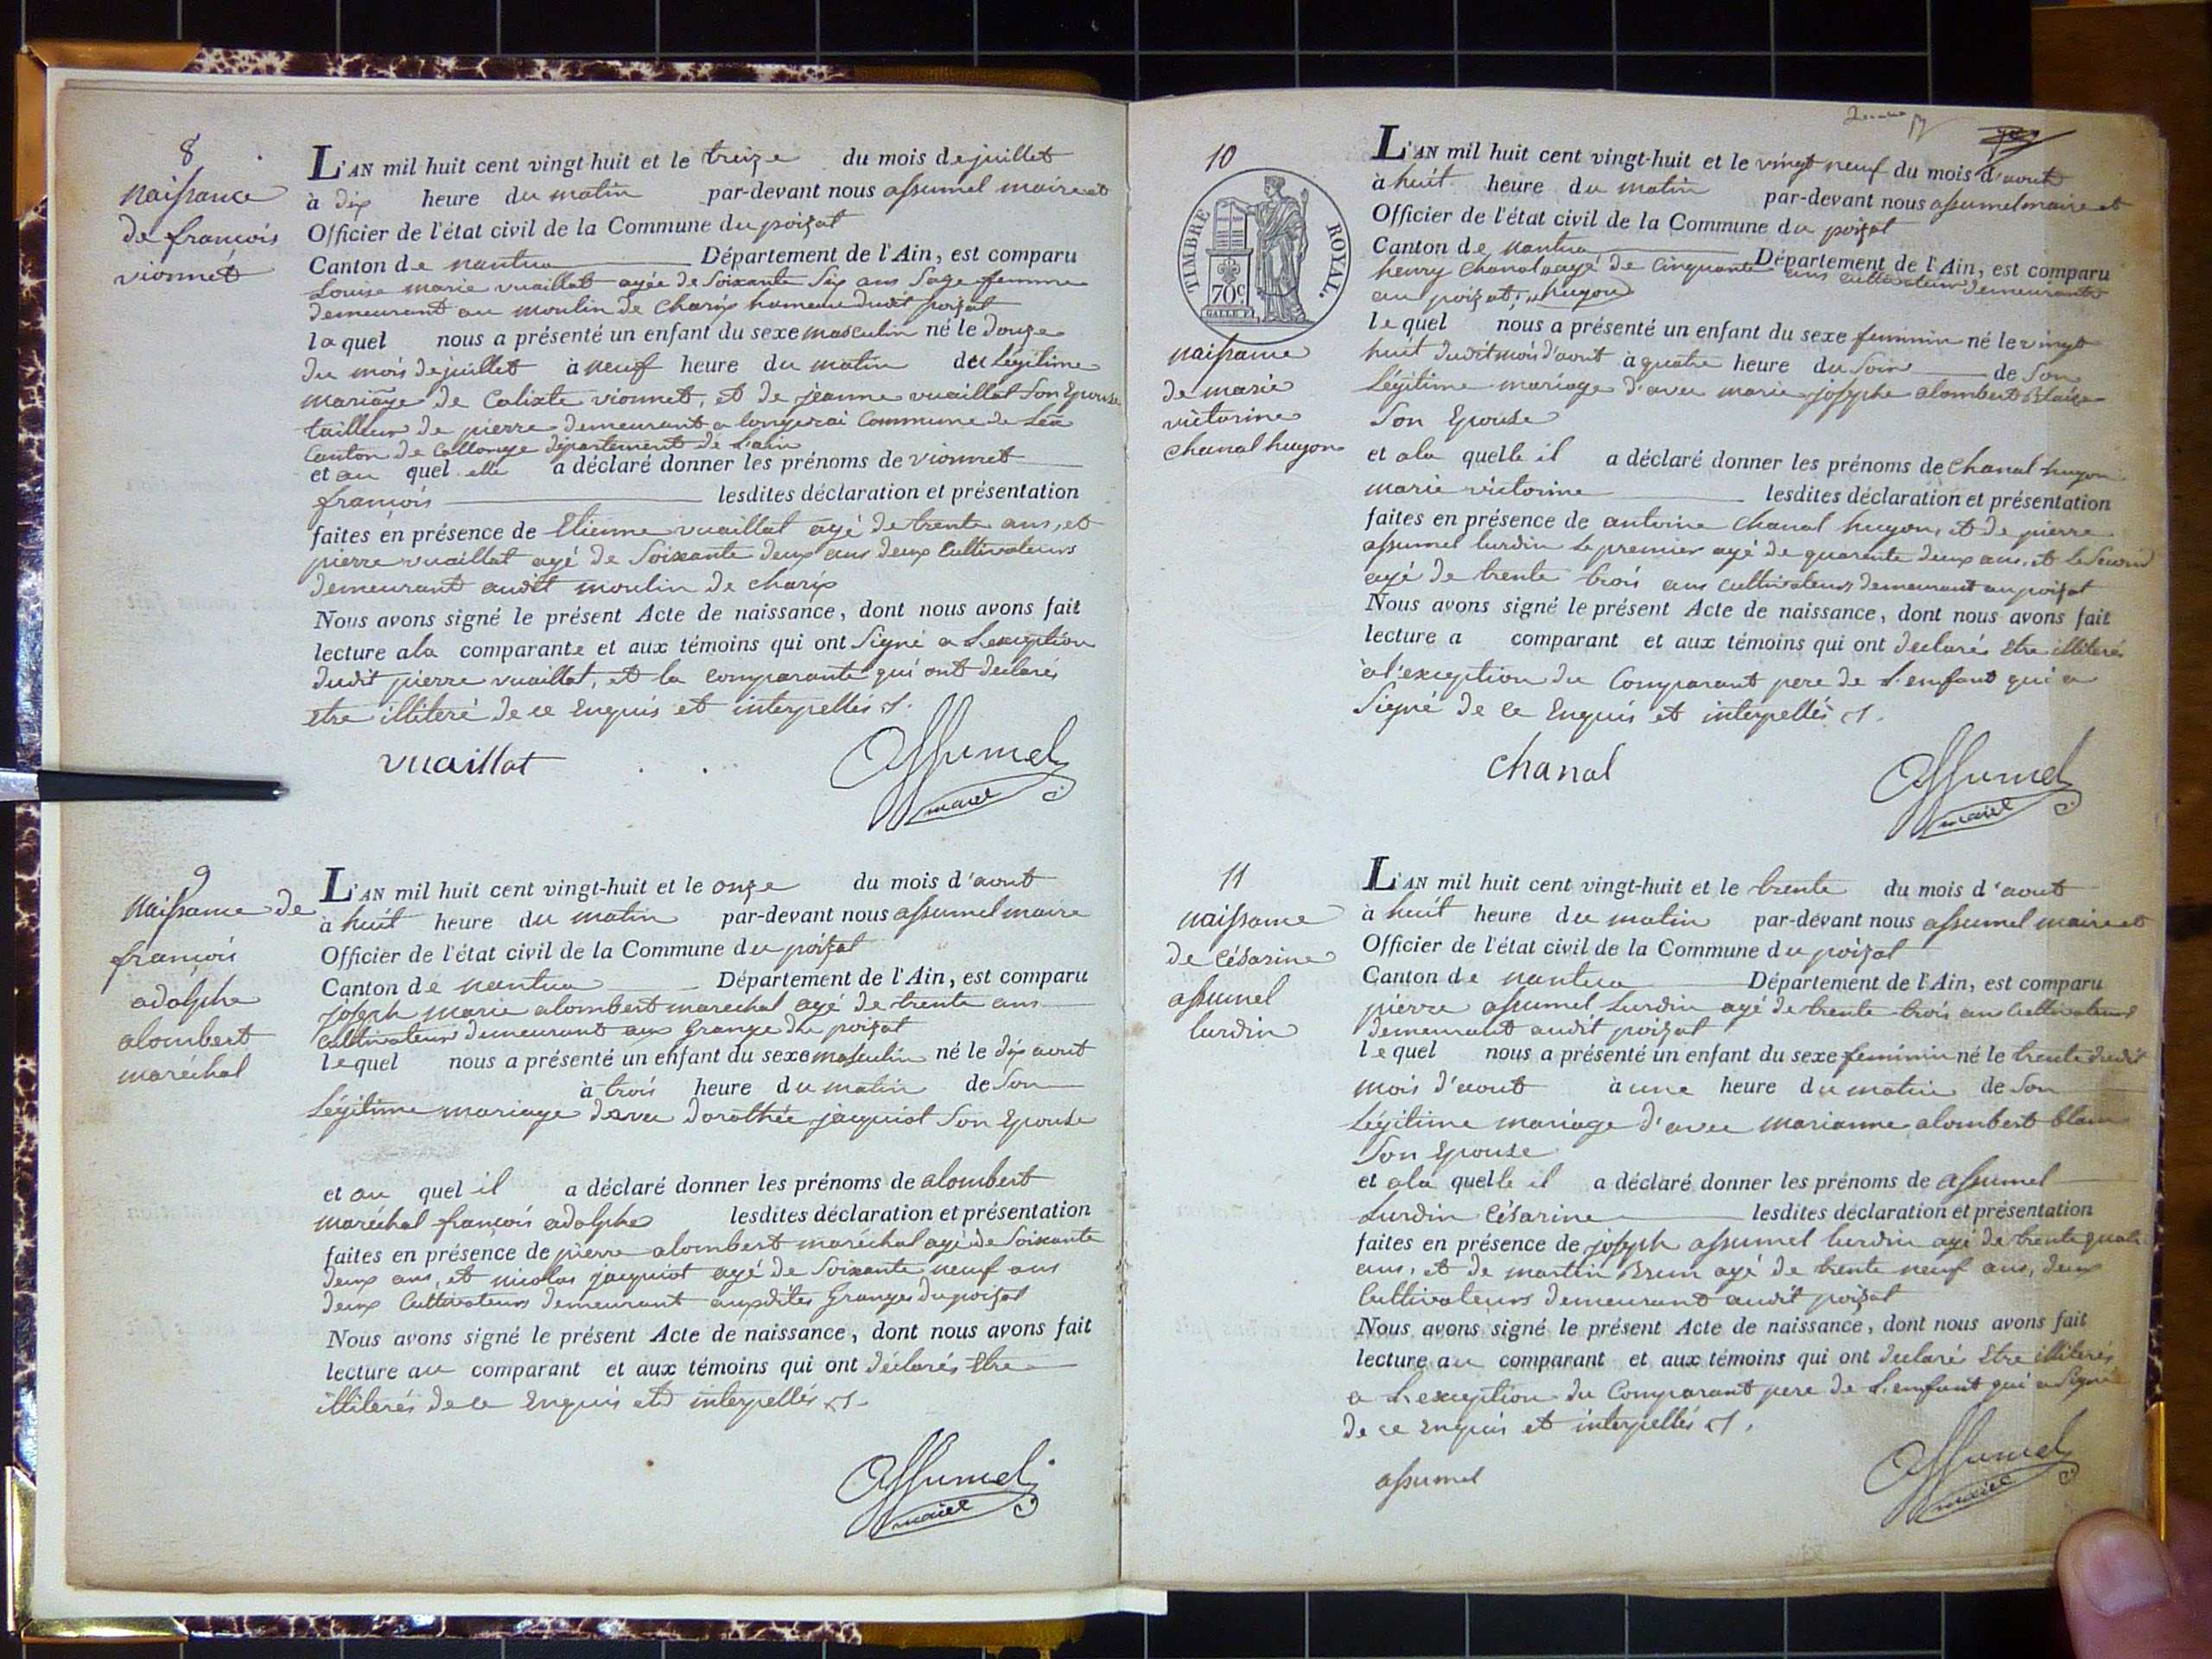 8
naissance
de francois
vionnet
L'AN mil huit cent vingt-huit et le treize du mois de juillet
à dix heure du matin par-devant nous assumel maire et
Officier de l'état civil de la Commune du poizat
Canton de nantua Département de l'Ain, est comparu
Louise marie vuaillat agée de Soixante Six ans Sage femme
demeurant au moulin de Charix hameau dudit poizat
laquel nous a présenté un enfant du sexe masculin né le douze
du mois de juillet à neuf heure du matin du Légitime
mariage de Calixte vionnet, et de jeanne vuaillat Son Epouse
tailleur de pierre demeurant a longerai Commune de Léaz
Canton de Collonge département de Lain
et au quel elle a déclaré donner les prénoms de vionnet
francois lesdites déclaration et présentation
faites en présence de Etienne vuaillat agé de trente ans, et
pierre vuaillat agé de Soixante deux ans deux Cultivateurs
demeurant audit moulin de charix
Nous avons signé le présent Acte de naissance, dont nous avons fait
lecture a la comparante et aux témoins qui ont Signé a L'exception
dudit pierre vuaillat, et la comparante qui ont declarés
etre illiteré de ce Enquis et interpellés
vuaillat
Assumel
maire
9
naissance de
françois
adolphe
alombert
maréchal
L'AN mil huit cent vingt-huit et le onze du mois d'aout
à huit heure du matin par-devant nous assumel maire
Officier de l'état civil de la Commune du poizat
Canton de nantua Département de l'Ain, est comparu
joseph marie alombert marechal agé de trente ans
Cultivateur demeurant aux Grange du poizat
lequel nous a présenté un enfant du sexe masculin né le dix aout
à trois heure du matin de Son
Légitime mariage davec dorothée jacquiot Son Epouse
et au quel il a déclaré donner les prénoms de alombert
maréchal françois adolphe lesdites déclaration et présentation
faites en présence de pierre alombert maréchal agé de Soixante
deux ans, et nicolas jacquiot agé de Soixante neuf ans
deux Cultivateurs demeurant auxdites Granges du poizat
Nous avons signé le présent Acte de naissance, dont nous avons fait
lecture au comparant et aux témoins qui ont déclarés Etre
illiterés de ce Enquis et interpellés
Assumel
maire
10
TIMBRE ROYAL.
70c
naissance
de marie
victorine
chanal hugon
L'AN mil huit cent vingt-huit et le vingt neuf du mois d'aout
à huit heure du matin par-devant nous assumel maire et
Officier de l'état civil de la Commune du poizat
Canton de nantua Département de l'Ain, est comparu
henry Chanal agé de Cinquante ans cultivateur demeurant
au poizat, hugon
lequel nous a présenté un enfant du sexe feminin né le vingt
huit dudit mois d'aout à quatre heure du Soir de Son
Légitime mariage d'avec marie josephe alombert Blaise
Son Epouse
et ala quelle il a déclaré donner les prénoms de chanal hugon
marie victorine lesdites déclaration et présentation
faites en présence de antoine chanal hugon, et de pierre
assumel lurdin Le premier agé de quarente deux ans, et Le Second
agé de trente trois ans cultivateurs demeurant au poizat
Nous avons signé le présent Acte de naissance, dont nous avons fait
lecture a comparant et aux témoins qui ont declarés Etre illiterés
à l'exception du Comparant pere de L'enfant qui a
Signé de ce Enquis et interpellés
chanal
Assumel
maire
11
naissance
de Césarine
assumel
lurdin
L'AN mil huit cent vingt-huit et le trente du mois d'aout
à huit heure du matin par-devant nous assumel maire et
Officier de l'état civil de la Commune du poizat
Canton de nantua Département de l'Ain, est comparu
pierre assumel Lurdin agé de trente trois ans Cultivateur
demeurant audit poizat
lequel nous a présenté un enfant du sexe feminin né le trente dudit
mois d'aout à une heure du matin de Son
Légitime mariage d'avec marianne alombert blanc
Son Epouse
et ala quelle il a déclaré donner les prénoms de assumel
Lurdin Césarine lesdites déclaration et présentation
faites en présence de joseph assumel lurdin agé de trente quatre
ans, et de martin Brun agé de trente neuf ans, deux
Cultivateurs demeurant audit poizat
Nous avons signé le présent Acte de naissance, dont nous avons fait
lecture au comparant et aux témoins qui ont declaré Etre illiterés
a L'exception du Comparant pere de L'enfant qui a Signé
de ce enquis et interpellés
assumel
Assumel
maire